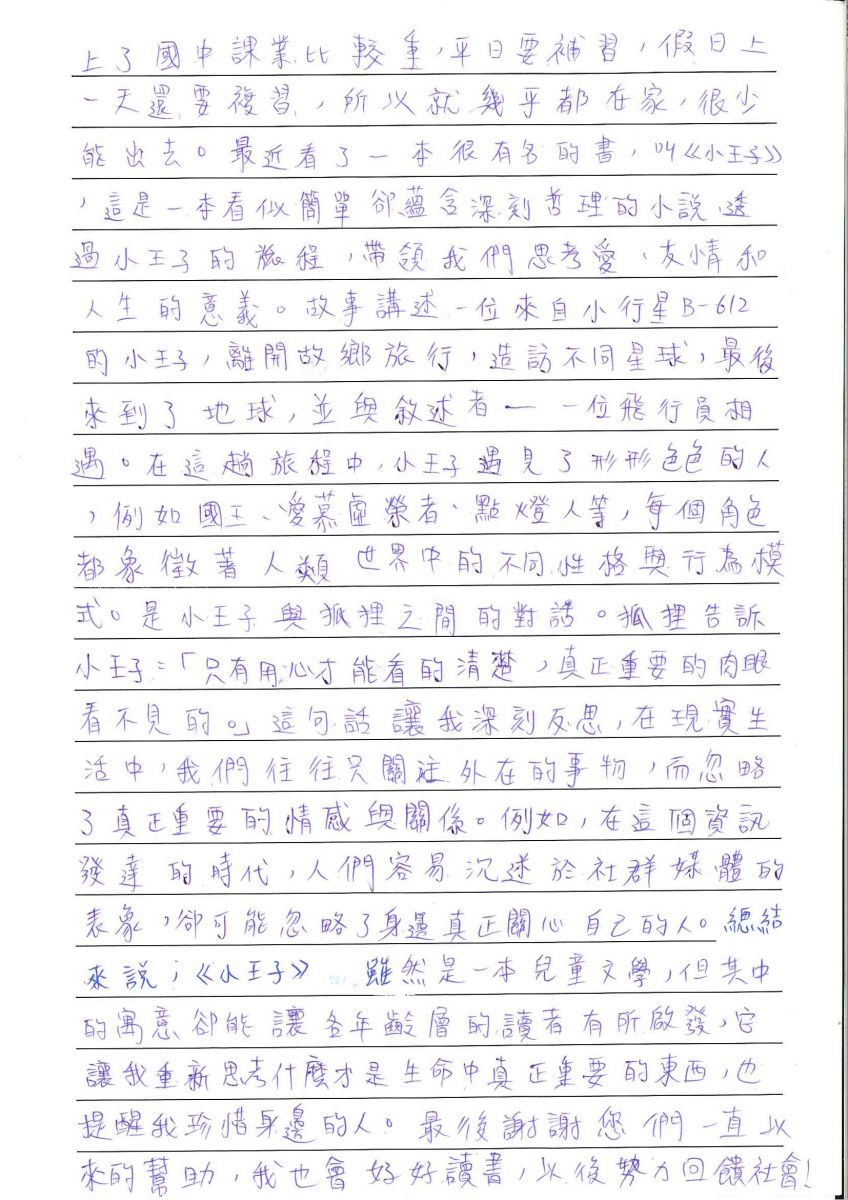 上了國中課業比較重，平日要補習，假日上
一天還要複習，所以就幾乎都在家，很少
能出去。最近看了一本很有名的書，叫《小王子》
，這是一本看似簡單卻蘊含深刻哲理的小說，透
過小王子的旅程，帶領我們思考愛、友情和
人生的意義。故事講述一位來自小行星B-612
的小王子，離開故鄉旅行，造訪不同星球，最後
來到了地球，並與敘述者——一位飛行員相
遇。在這趟旅程中，小王子遇見了形形色色的人
，例如國王、愛慕虛榮者、點燈人等，每個角色
都象徵著人類世界中的不同性格與行為模
式。是小王子與狐狸之間的對話。狐狸告訴
小王子：「只有用心才能看的清楚，真正重要的肉眼
看不見的。」這句話讓我深刻反思，在現實生
活中，我們往往只關注外在的事物，而忽略
了真正重要的情感與關係。例如，在這個資訊
發達的時代，人們容易沉迷於社群媒體的
表象，卻可能忽略了身邊真正關心自己的人。總結
來說，《小王子》雖然是一本兒童文學，但其中
的寓意卻能讓各年齡層的讀者有所啟發，它
讓我重新思考什麼才是生命中真正重要的東西，也
提醒我珍惜身邊的人。最後謝謝您們一直以
來的幫助，我也會好好讀書，以後努力回饋社會！